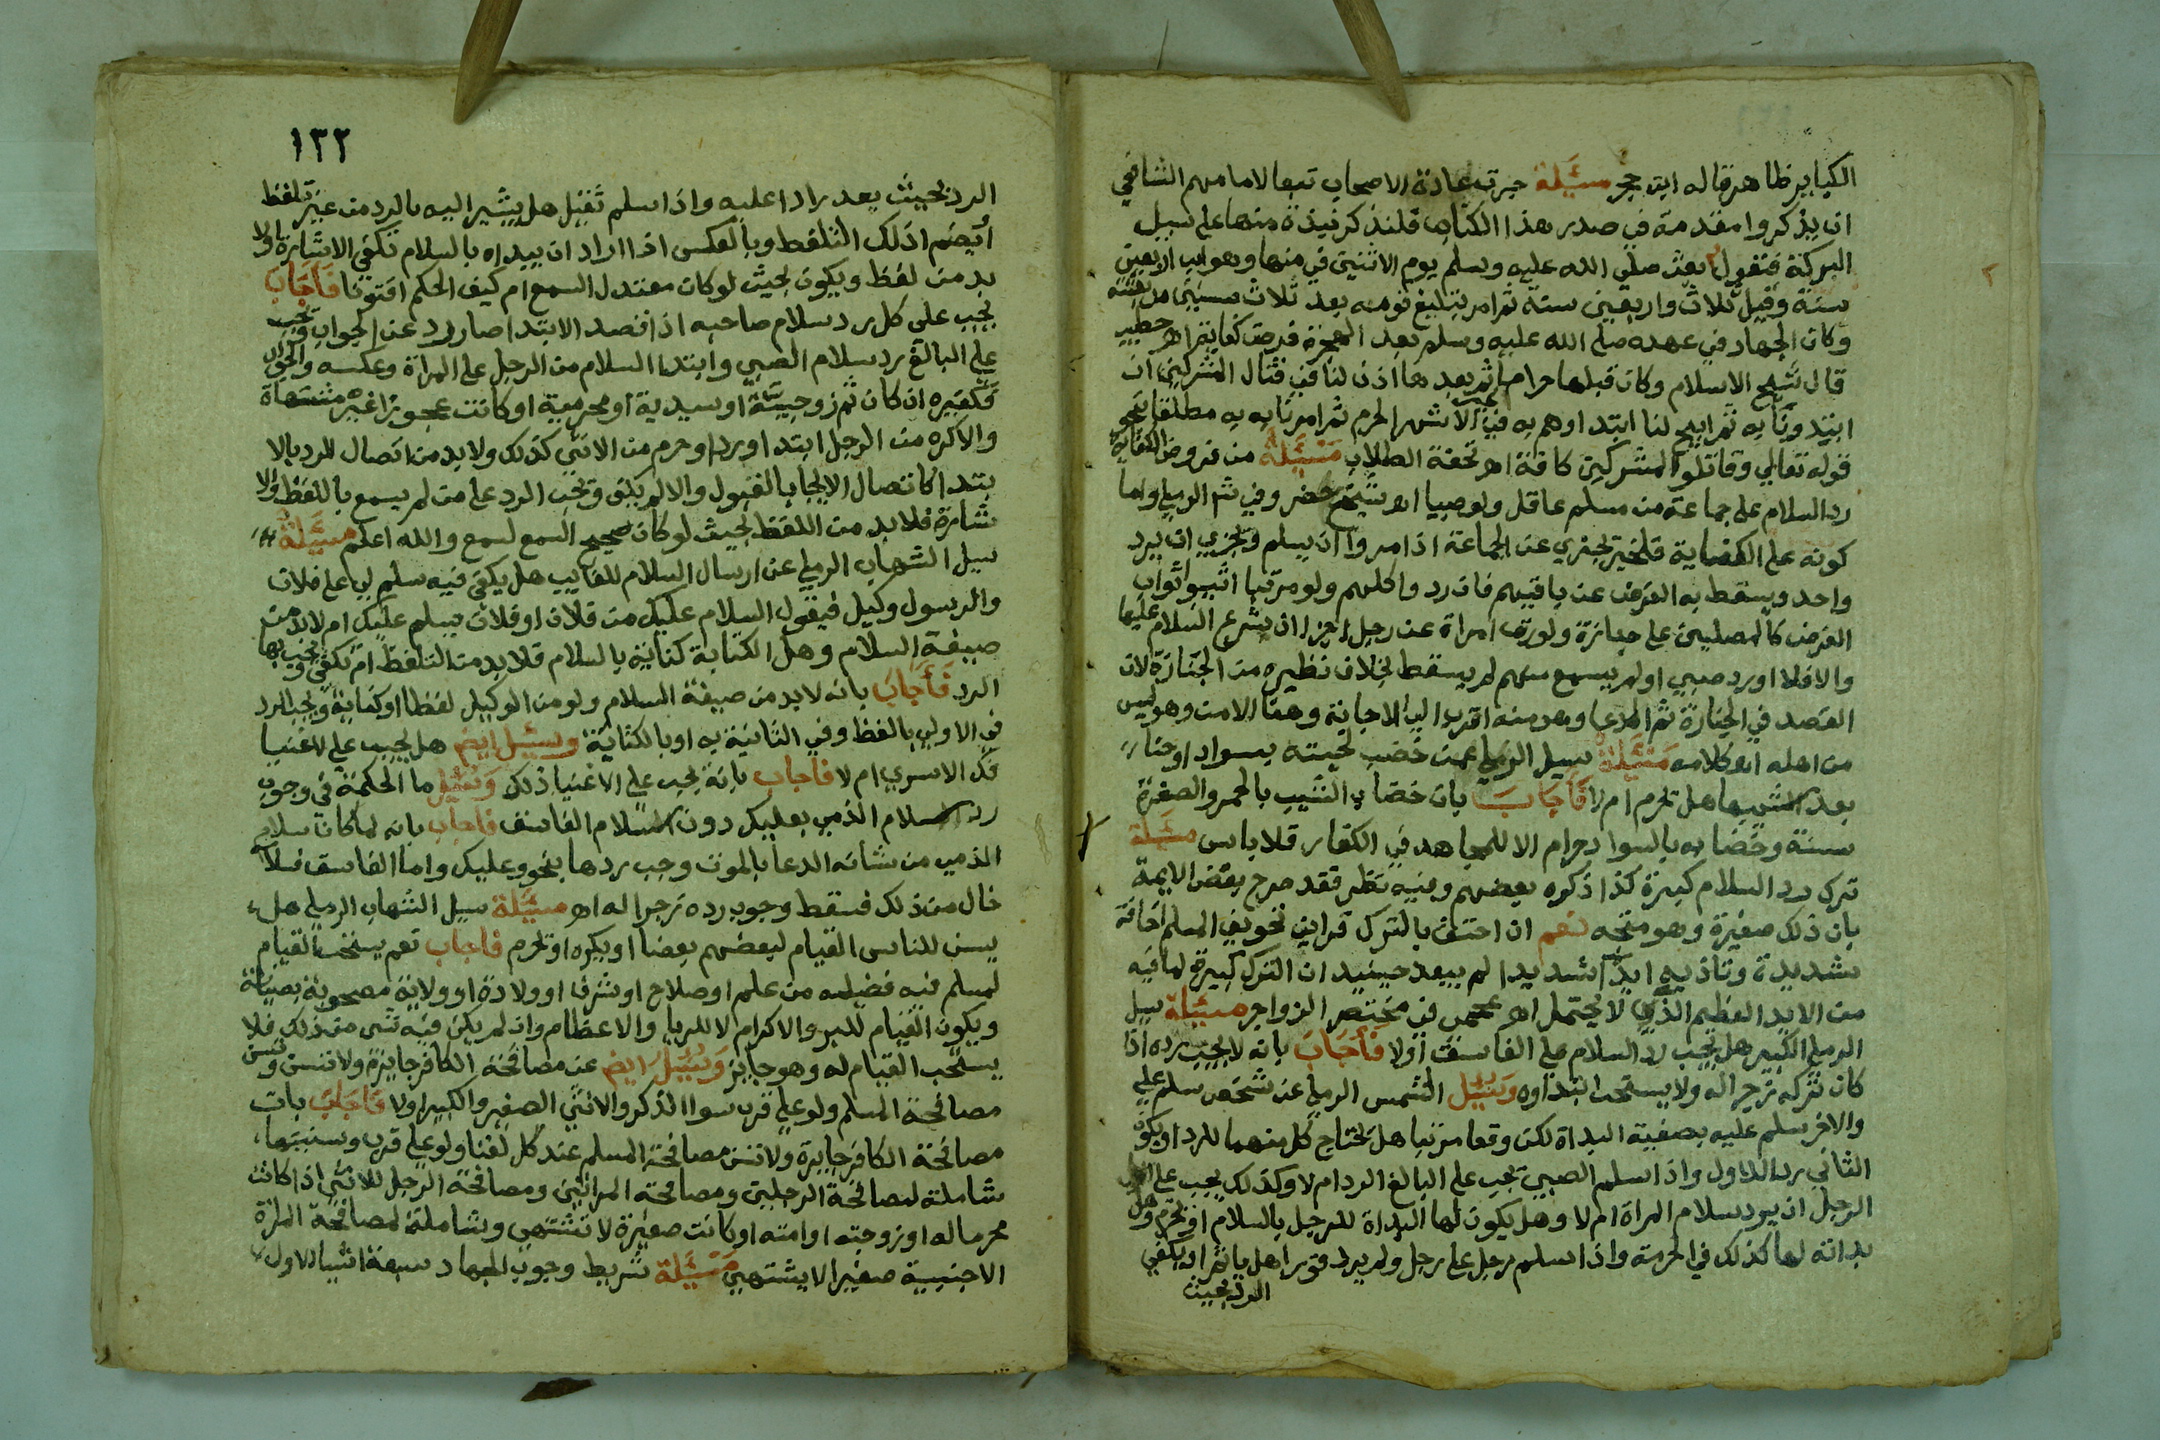 الكباير ظاهر قاله ابن حجر مسئلة جرت عادة الاصحاب تبعا لامامهم الشافعي
ان يذكروا مقدمة في صدر هذا الكتاب فلنذكر نبذة منها على سبيل
البركة فنقول بعث صلي الله عليه وسلم يوم الاثنين في منها وهو ابن الاربعين
سنة وقيل ثلاث واربعين سنة ثم امر بتبليغ قومه بعد ثلاث سنين من بعثته
وكان الجهاد في عهده صلي الله عليه وسلم بعد الهجرة فرض كفاية اهـ خطيب
قال شيخ الاسلام وكان قبلها حراما ثم بعدها اذن لنا في قتال المشركين ان
ابتدونا به ثم ابيح لنا ابتداوهم به في غير الاشهر الحرم ثم امرنا به مطلقا بنحو
قوله تعالي وقاتلوا المشركين كافة اهـ تحفة الطلاب مسئلة من فروض الكفاية
رد السلام على جماعة من مسلم عاقل ولو صبيا اهـ شيخ خضر وفي شم الرملي واما
كونه على الكفاية فلخبر يجزي عن الجماعة اذا مروا ان يسلم ويجزي ان يرد
واحد ويسقط به الفرض عن باقيهم فان ردوا كلهم ولو مرتبا اثيبوا ثواب
الفرض كالمصلين على جنازة ولو ردت امراة عن رجل اجزا ان شرع السلام عليها
والا فلا او رد صبي او لم يسمع منهم لم يسقط بخلاف نظيره من الجنازة لان
القصد في الجنازة ثم الدعا وهو منه اقرب الى الاجابة وهنا الامن وهو ليس
من اهله اهـ كلامه مسئلة سيل الرملي عمن خضب لحيته بسواد او حنا
بعد الشيب هل تحرم ام لا فاجاب بان خضاب الشيب بالحمر والصفرة
سنة وخضابه بالسواد حرام الا للمجاهد في الكفار فلا باس مسئلة
ترك رد السلام كبيرة كذا ذكره بعضهم وفيه نظر فقد صرح بعض الايمة
بان ذلك صغيرة وهو متجه نعم ان احتف بالترك قراين تخويف المسلم اخافة
شديدة وتاذيه ايذا شديدا لم يبعد حينيد ان الترك كبيرة لما فيه
من الايذ العظيم الذي لا يحتمل اهـ في مختصر الزواجر مسئلة سيل
الرملي الكبير هل يجب رد السلام علي الفاسق او لا فاجاب بانه لا يجب رده اذا
كان تركه زجرا له ولا يستحب ابتداوه وسئل الشمس الرملي عن شخص سلم علي
والاخر سلم عليه بصفية البداة لكن وقعا مرتبا هل تحتاج كل منهما للرد او يكون
الثاني رد اللاول واذا سلم الصبي تجب على البالغ الرد ام لا وكذلك يجب على
الرجل ان يرد سلام المراة ام لا وهل يكون لها البداة للرجل بالسلام او تحرم وهل
بداته لها كذلك في الحرمة واذا سلم رجل على رجل ولم يرد فورا هل ياثم او يكفي
الرد بحيث
١٣٢
الرد بحيث يعد رادا عليه واذا سلم ثقيل هل يشير اليه بالرد من غير تلفظ
ايضم اذلك التلفظ وبالعكس اذا اراد ان يبداه بالسلام تكفي الاشارة او لا
بد من لفظ ويكون بحيث لو كان معتدل السمع ام كيف الحكم افتونا فاجاب
يجب على كل رد سلام صاحبه اذا قصد الابتدا صارردد عن الجواب وتجب
على البالغ رد سلام الصبي وابتدا السلام من الرجل على المراة وعكسه والجواب
كغيره ان كان ثم زوجية او سيدية او محرمية او كانت عجوزا غير مشتهاة
والا كره من الرجل ابتدا وردا وحرم من الانثى كذلك ولا بد من اتصال الرد بالا
بتدا كاتصال الايجاب بالقبول والا لم يكف وتجب الرد على من لم يسمع باللفظ والا
شارة فلا بد من اللفظ بحيث لو كان صحيح السمع لسمع والله اعلم مسئلة
سيل الشهاب الرملي عن ارسال السلام للغايب هل يكفي فيه سلم لي على فلان
والرسول وكيل فيقول السلام عليك من فلان او فلان يسلم عليك ام لا بد من
صيغة السلام وهل الكتابة كناية بالسلام فلا بد من التلفظ ام تكفي وتجب بها
الرد فاجاب بانه لا بد من صيغة السلام ولو من الوكيل لفظا او كناية ويجب الرد
في الاولي بالفظ وفي الثانية به او بالكتابة وسئل ايضم هل يجب على الاغنيا
فك الاسري ام لا فاجاب بانه يجب على الاغنيا ذلك وسئل ما الحكمة في وجوب
رد السلام الذمي بعليك دون السلام الفاسق فاجاب بانه لما كان سلام
الذمي من شانه الدعا بالموت وجب ردها بنحو وعليك واما الفاسق فسلامه
خال من ذلك فسقط وجوب رده زجرا له اهـ مسئلة سيل الشهاب الرملي هل
يسن للناس القيام لبعضهم بعضا او يكره او تحرم فاجاب نعم يستحب القيام
لمسلم فيه فضيلة من علم او صلاح او شرف او ولادة او ولاية مصحوبة بصيانة
ويكون القيام للبر والاكرام لا للريا والاعظام وان لم يكن فيه شى من ذلك فلا
يستحب القيام له وهو جايز وسئل ايضم عن مصافحة الكافر جايزة ولا تسن وتسن
مصافحة المسلم ولو علي قرب سوا الذكر والانثي الصغير والكبير او لا فاجاب بان
مصافحة الكافر جايزة ولا تسن مصافحة المسلم عند كل لقا ولو علي قرب وسنيتها
شاملة لمصافحة الرجلين ومصافحة المراتين ومصافحة الرجل للانثي اذا كانت
محرما له او زوجته او امته او كانت صغيرة لا تشتهي وشاملة لمصافحة المراة
الاجنبية صغيرا لا يشتهي مسئلة شريط وجوب الجهاد سبعة اشيا الاول